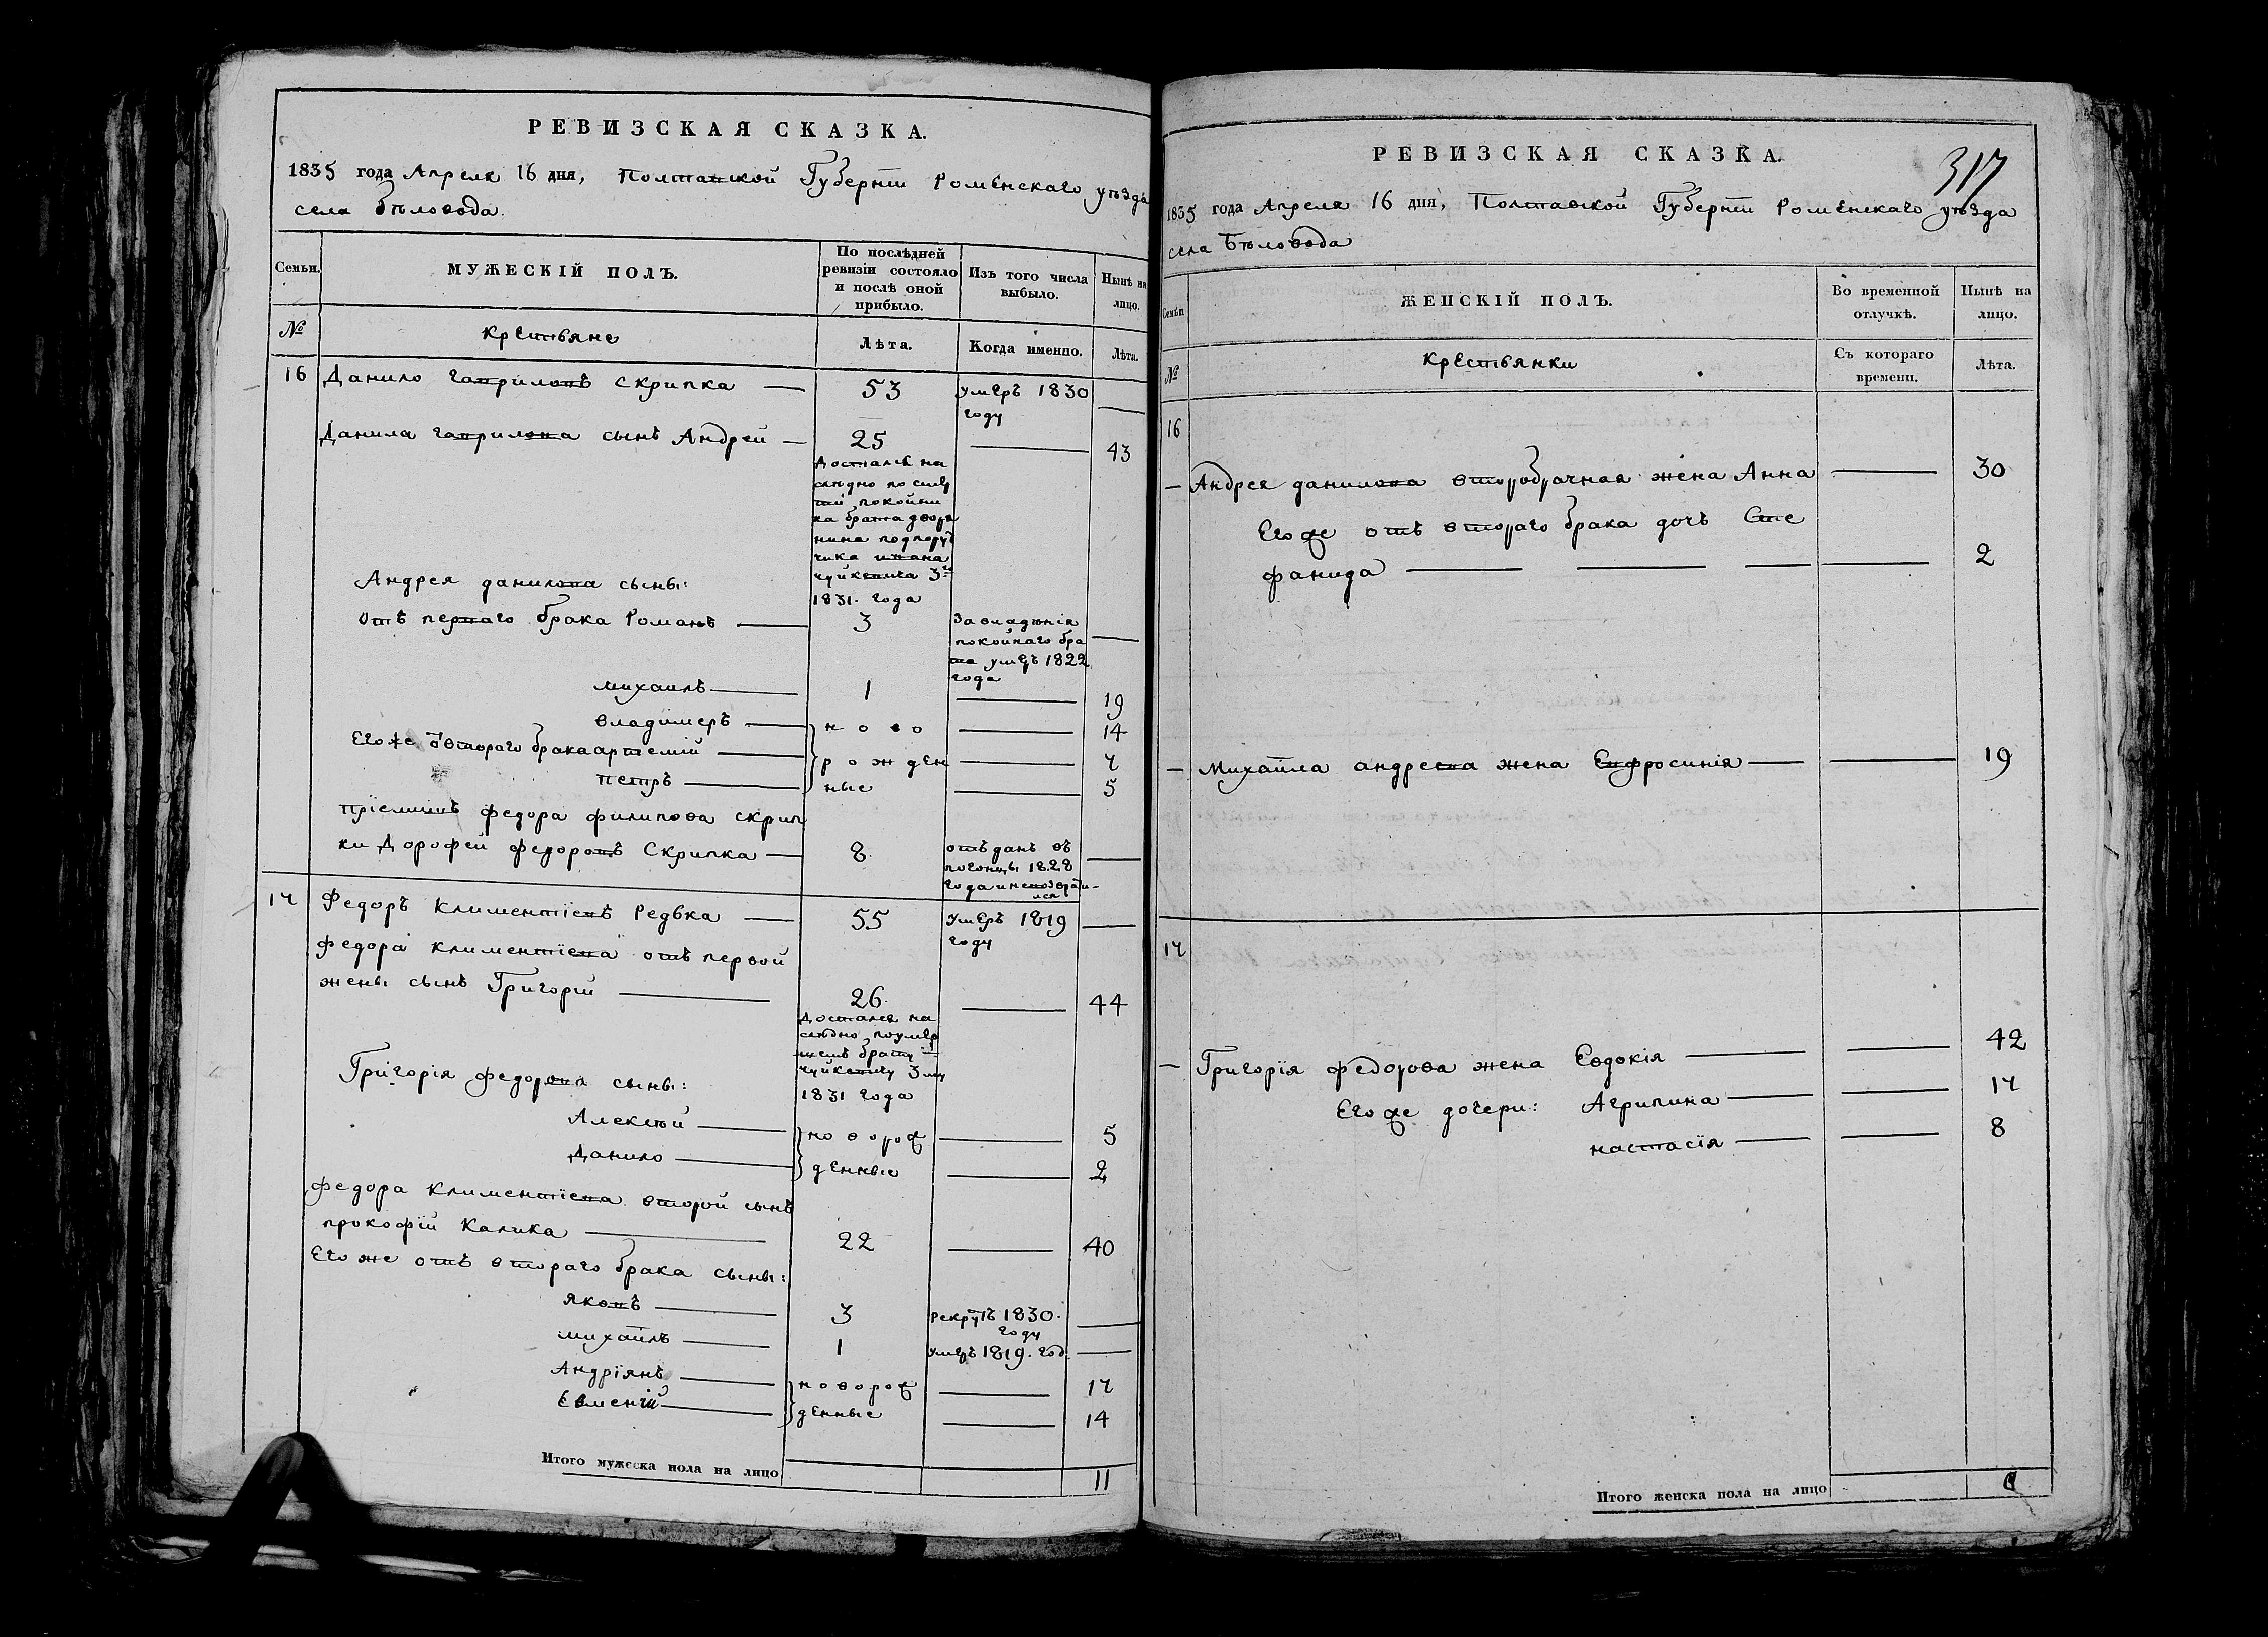 РЕВИЗСКАЯ СКАЗКА.
1835 года Апреля 16 дня, Полтавской Губерніи Роменскаго уѣзда
села Бѣловода.
Семьи.
МУЖЕСКІЙ ПОЛЪ.
По послѣдней
ревизіи состояло
и послѣ оной
прибыло.
Изъ того числа
выбыло.
Нынѣ на
лицо.
№
крестьяне
Лѣта.
Когда именно.
Лѣта.
16 Данило гавриловъ скрипка — 53 умеръ 1830 —
году
Данила гаврилова сынъ Андрей — 25 — 43
Достался на
слѣдно по смер
тии покойни
ка брата дворя
нина подпору
чика ивана
чуйкевича 3го
1831. года
Андрея данилова сыны:
отъ перваго брака Романъ — 3 Завладѣнія —
покойнаго бра
та умеръ 1822
года
михаилъ — 1 — 19
владимеръ — ново — 14
Егоже отвтораго брака артемій — рожден — 7
петръ — ные — 5
пріемишъ федора филипова скрип
ки Дорофей федоровъ Скрипка — 8. отъданъ въ —
погонцы 1828
года иневозврати-
лся
17 Федоръ Климентіевъ Редька — 55 умеръ 1819 —
году
федора климентіева отъ первой
жены сынъ Григорій — 26. — 44
Достался на
слѣдно поумер
шемъ брату
чуйкевичу 3му
1831 года
Григорія федорова сыны:
Алексѣй — новорож — 5
Данило — денные — 2
федора Климентіева второй сынъ
прокофій Калика — 22 — 40
Его же отъ втораго брака сыны:
яковъ — 3 рекрутъ 1830. —
году
михаилъ — 1 умеръ 1819. год. —
Андріянъ — новорож — 17
Евменій — денные — 14
Итого мужеска пола на лицо 11
317
РЕВИЗСКАЯ СКАЗКА.
1835 года Апреля 16 дня, Полтавской Губерніи Роменскаго уѣзда
села Бѣловода
Семьи
ЖЕНСКІЙ ПОЛЪ.
Во временной
отлучкѣ.
Нынѣ на
лицо.
№
крестьянки
Съ котораго
времени.
Лѣта.
16
— Андрея данилова второбрачная жена Анна — 30
Егоже отъ втораго брака дочъ Сте
фанида — — — — 2
— Михаила андреева жена Евфросинія — — 19
17
— Григорія федорова жена Евдокія — — 42
Егоже дочери: Агрипина — — 17
настасія — — 8
Итого женска пола на лицо